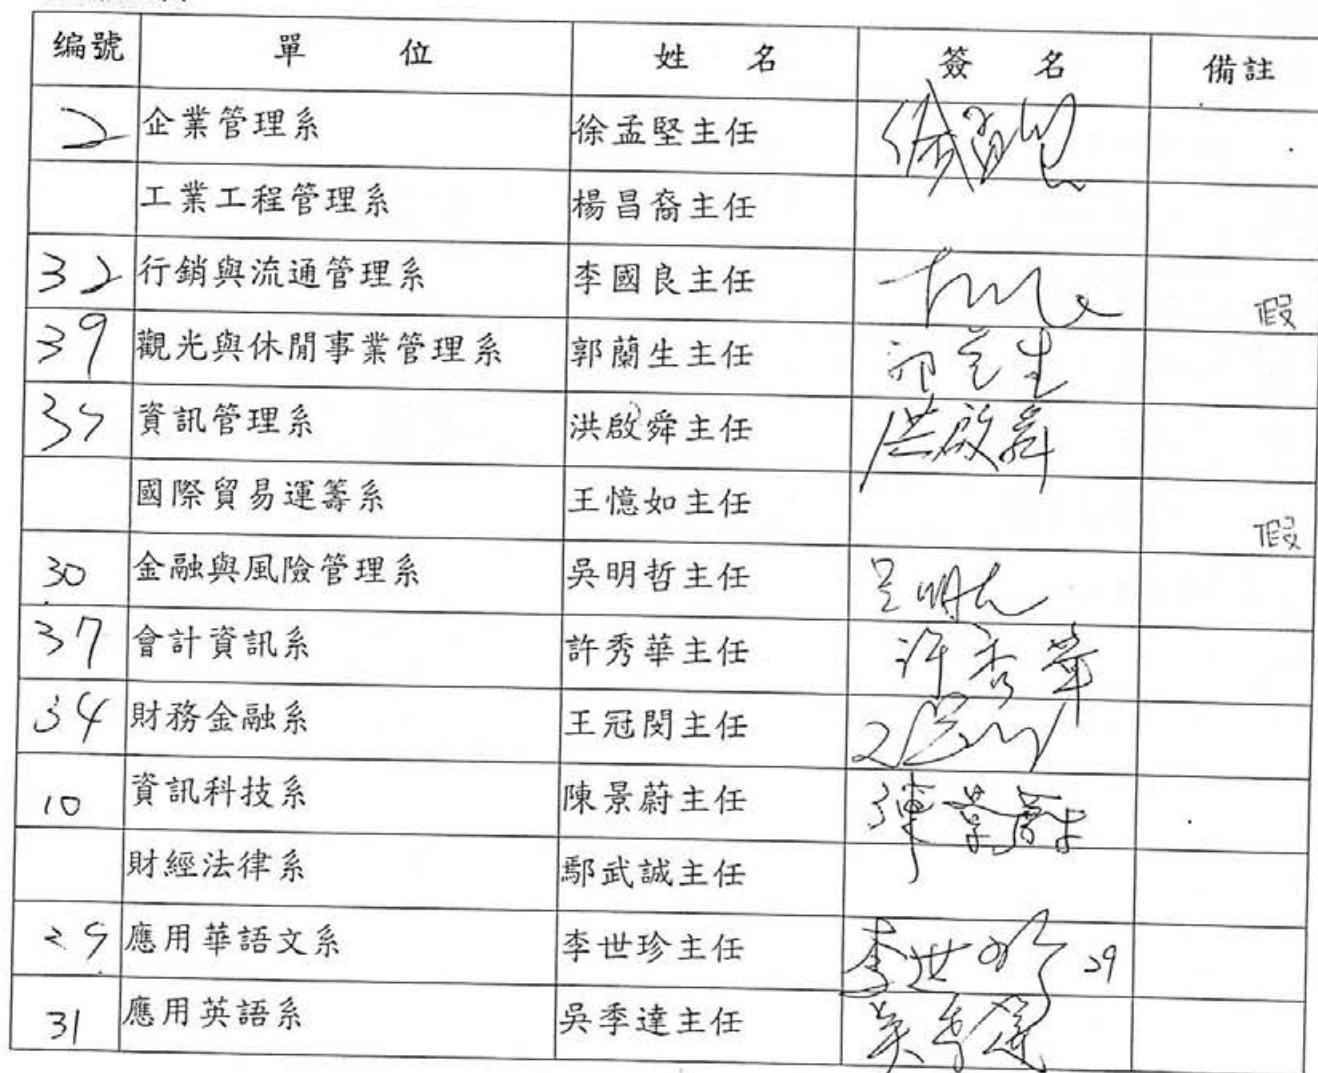 編號 單位 姓名 簽名 備註
2 企業管理系 徐孟堅主任 徐孟堅
工業工程管理系 楊昌裔主任
32 行銷與流通管理系 李國良主任 假
39 觀光與休閒事業管理系 郭蘭生主任
35 資訊管理系 洪啟舜主任 洪啟舜
國際貿易運籌系 王憶如主任 假
30 金融與風險管理系 吳明哲主任 吳明哲
37 會計資訊系 許秀華主任 許秀華
34 財務金融系 王冠閔主任
10 資訊科技系 陳景蔚主任 陳景蔚
財經法律系 鄢武誠主任
29 應用華語文系 李世珍主任 李世珍 29
31 應用英語系 吳季達主任 吳季達